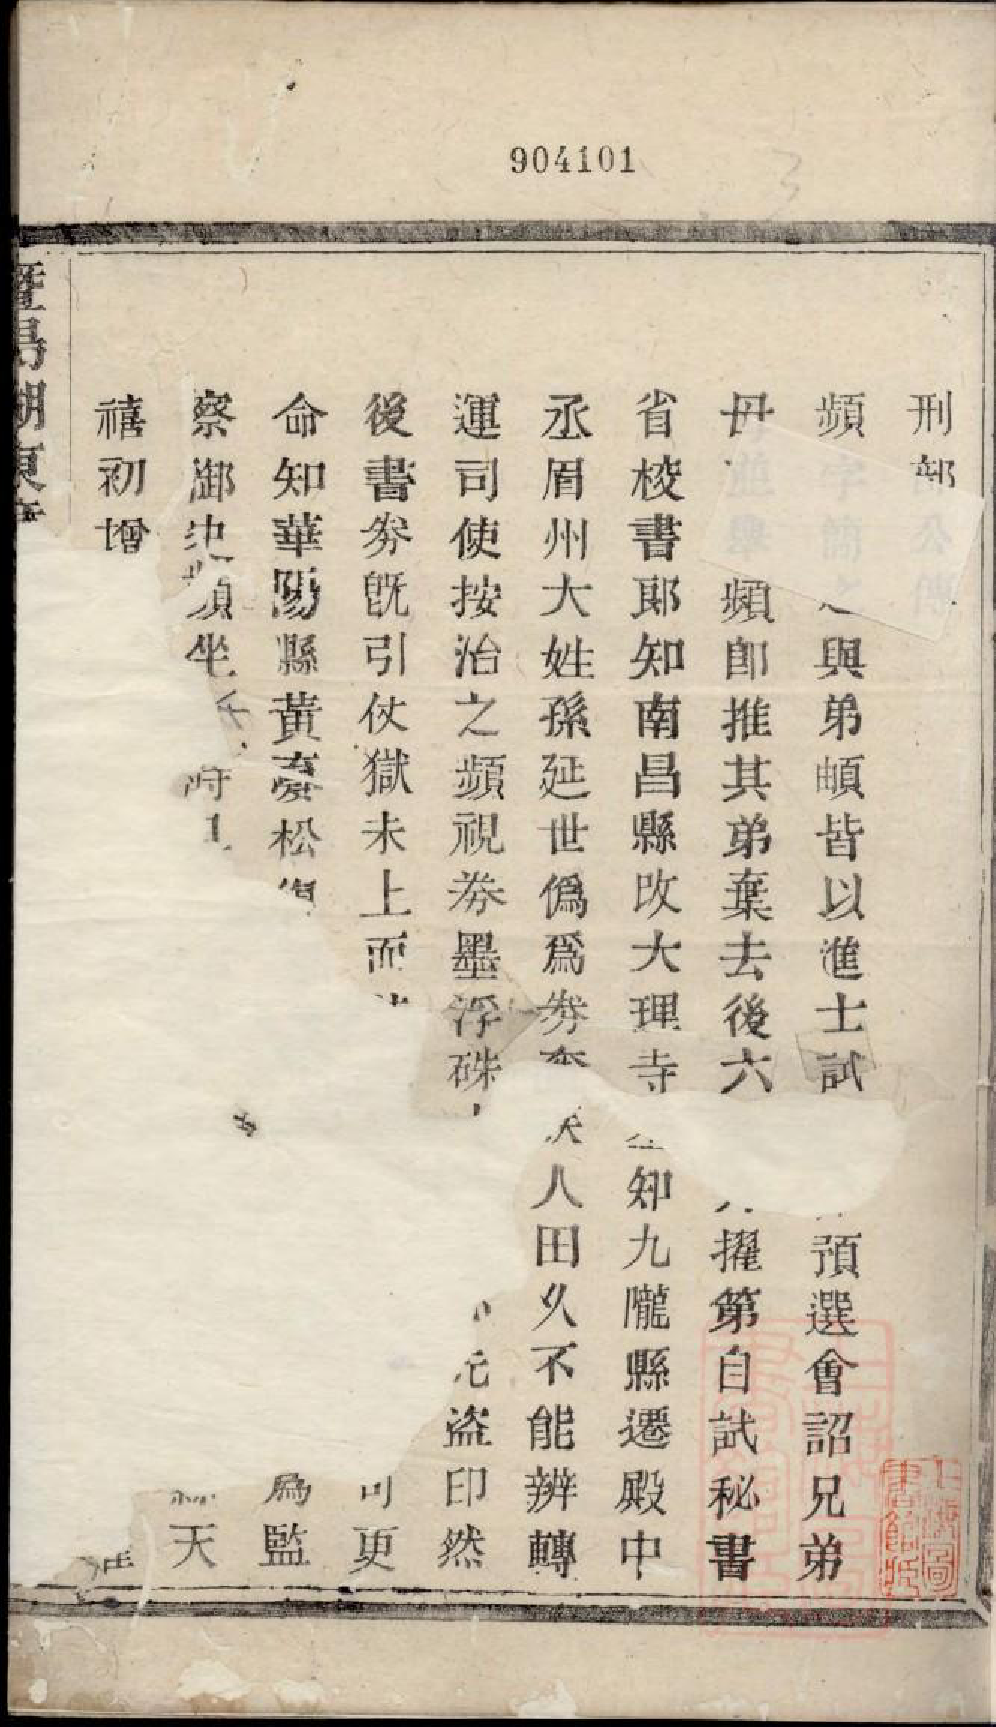 904101
刑部公傳
頻字簡之與弟頔皆以進士試預選會詔兄弟
毋並舉頻卽推其弟棄去後六擢第自試秘書
省校書郎知南昌縣改大理寺知九隴縣遷殿中
丞眉州大姓孫延世僞爲券人田久不能辨轉
運司使按治之頻視券墨浮硃盜印然
後書券旣引伏獄未上而更
命知華陽縣黃松爲監
察御史頻坐天
禧初增
暨陽湖東
上海圖書館藏